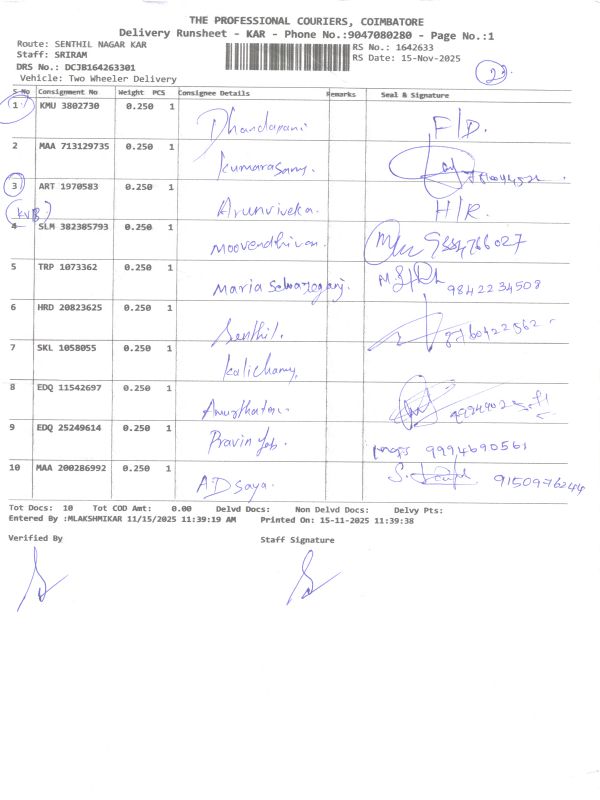 THE PROFESSIONAL COURIERS, COIMBATORE
Delivery Runsheet - KAR - Phone No.:9047080280 - Page No.:1
Route: SENTHIL NAGAR KAR
RS No.: 1642633
Staff: SRIRAM
RS Date: 15-Nov-2025
DRS No.: DCJB164263301
Vehicle: Two Wheeler Delivery
S No Consignment No Weight PCS Consignee Details Remarks Seal & Signature
1 KMU 3802730 0.250 1 Dhandapani F/D.
2 MAA 713129735 0.250 1 Kumarasamy.
3 ART 1970583 0.250 1 Arunviveka. H/R.
(KVB)
4 SLM 382385793 0.250 1 Moovendhiran.
5 TRP 1073362 0.250 1 Maria 9842234508
6 HRD 20823625 0.250 1 Senthil. 8760422562
7 SKL 1058055 0.250 1 Kalichamy.
8 EDQ 11542697 0.250 1
9 EDQ 25249614 0.250 1 Pravin Job. 9994690561
10 MAA 200286992 0.250 1 AD Saya. 9150976244
Tot Docs: 10 Tot COD Amt: 0.00 Delvd Docs: Non Delvd Docs: Delvy Pts:
Entered By :MLAKSHMIKAR 11/15/2025 11:39:19 AM Printed On: 15-11-2025 11:39:38
Verified By Staff Signature